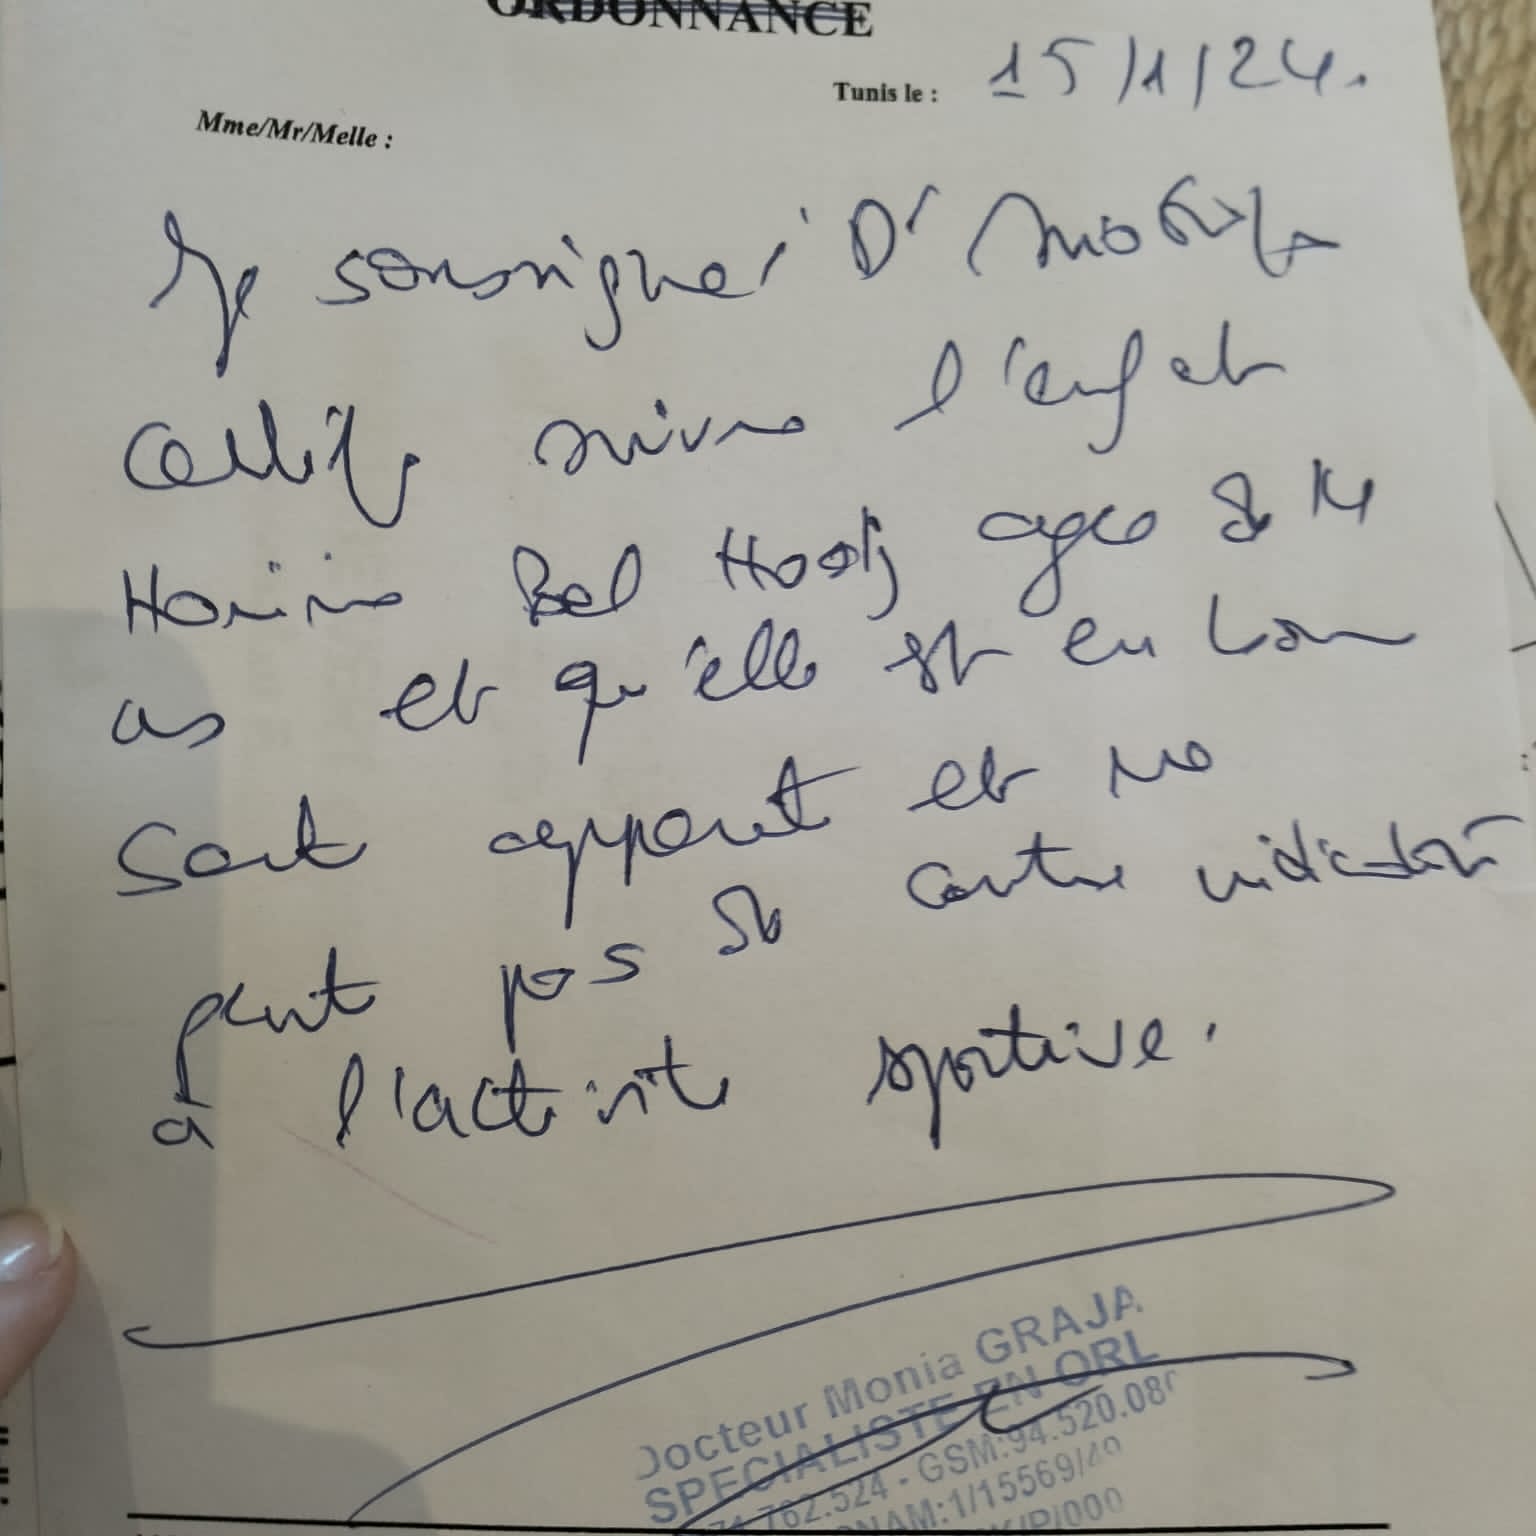 ORDONNANCE
Tunis le : 15/1/24.
Mme/Mr/Melle :
Je soussigner Dr
Certifie suivre l'enfant
Bel Hadj agée de 14
ans et qu'elle est en bonne
Santé apparente et ne
peut pas de contre indication
à l'activité sportive.
Docteur Monia GRAJA
SPECIALISTE EN ORL
71.762.524 - GSM:94.520.080
CNAM:1/15569/49
/P/000